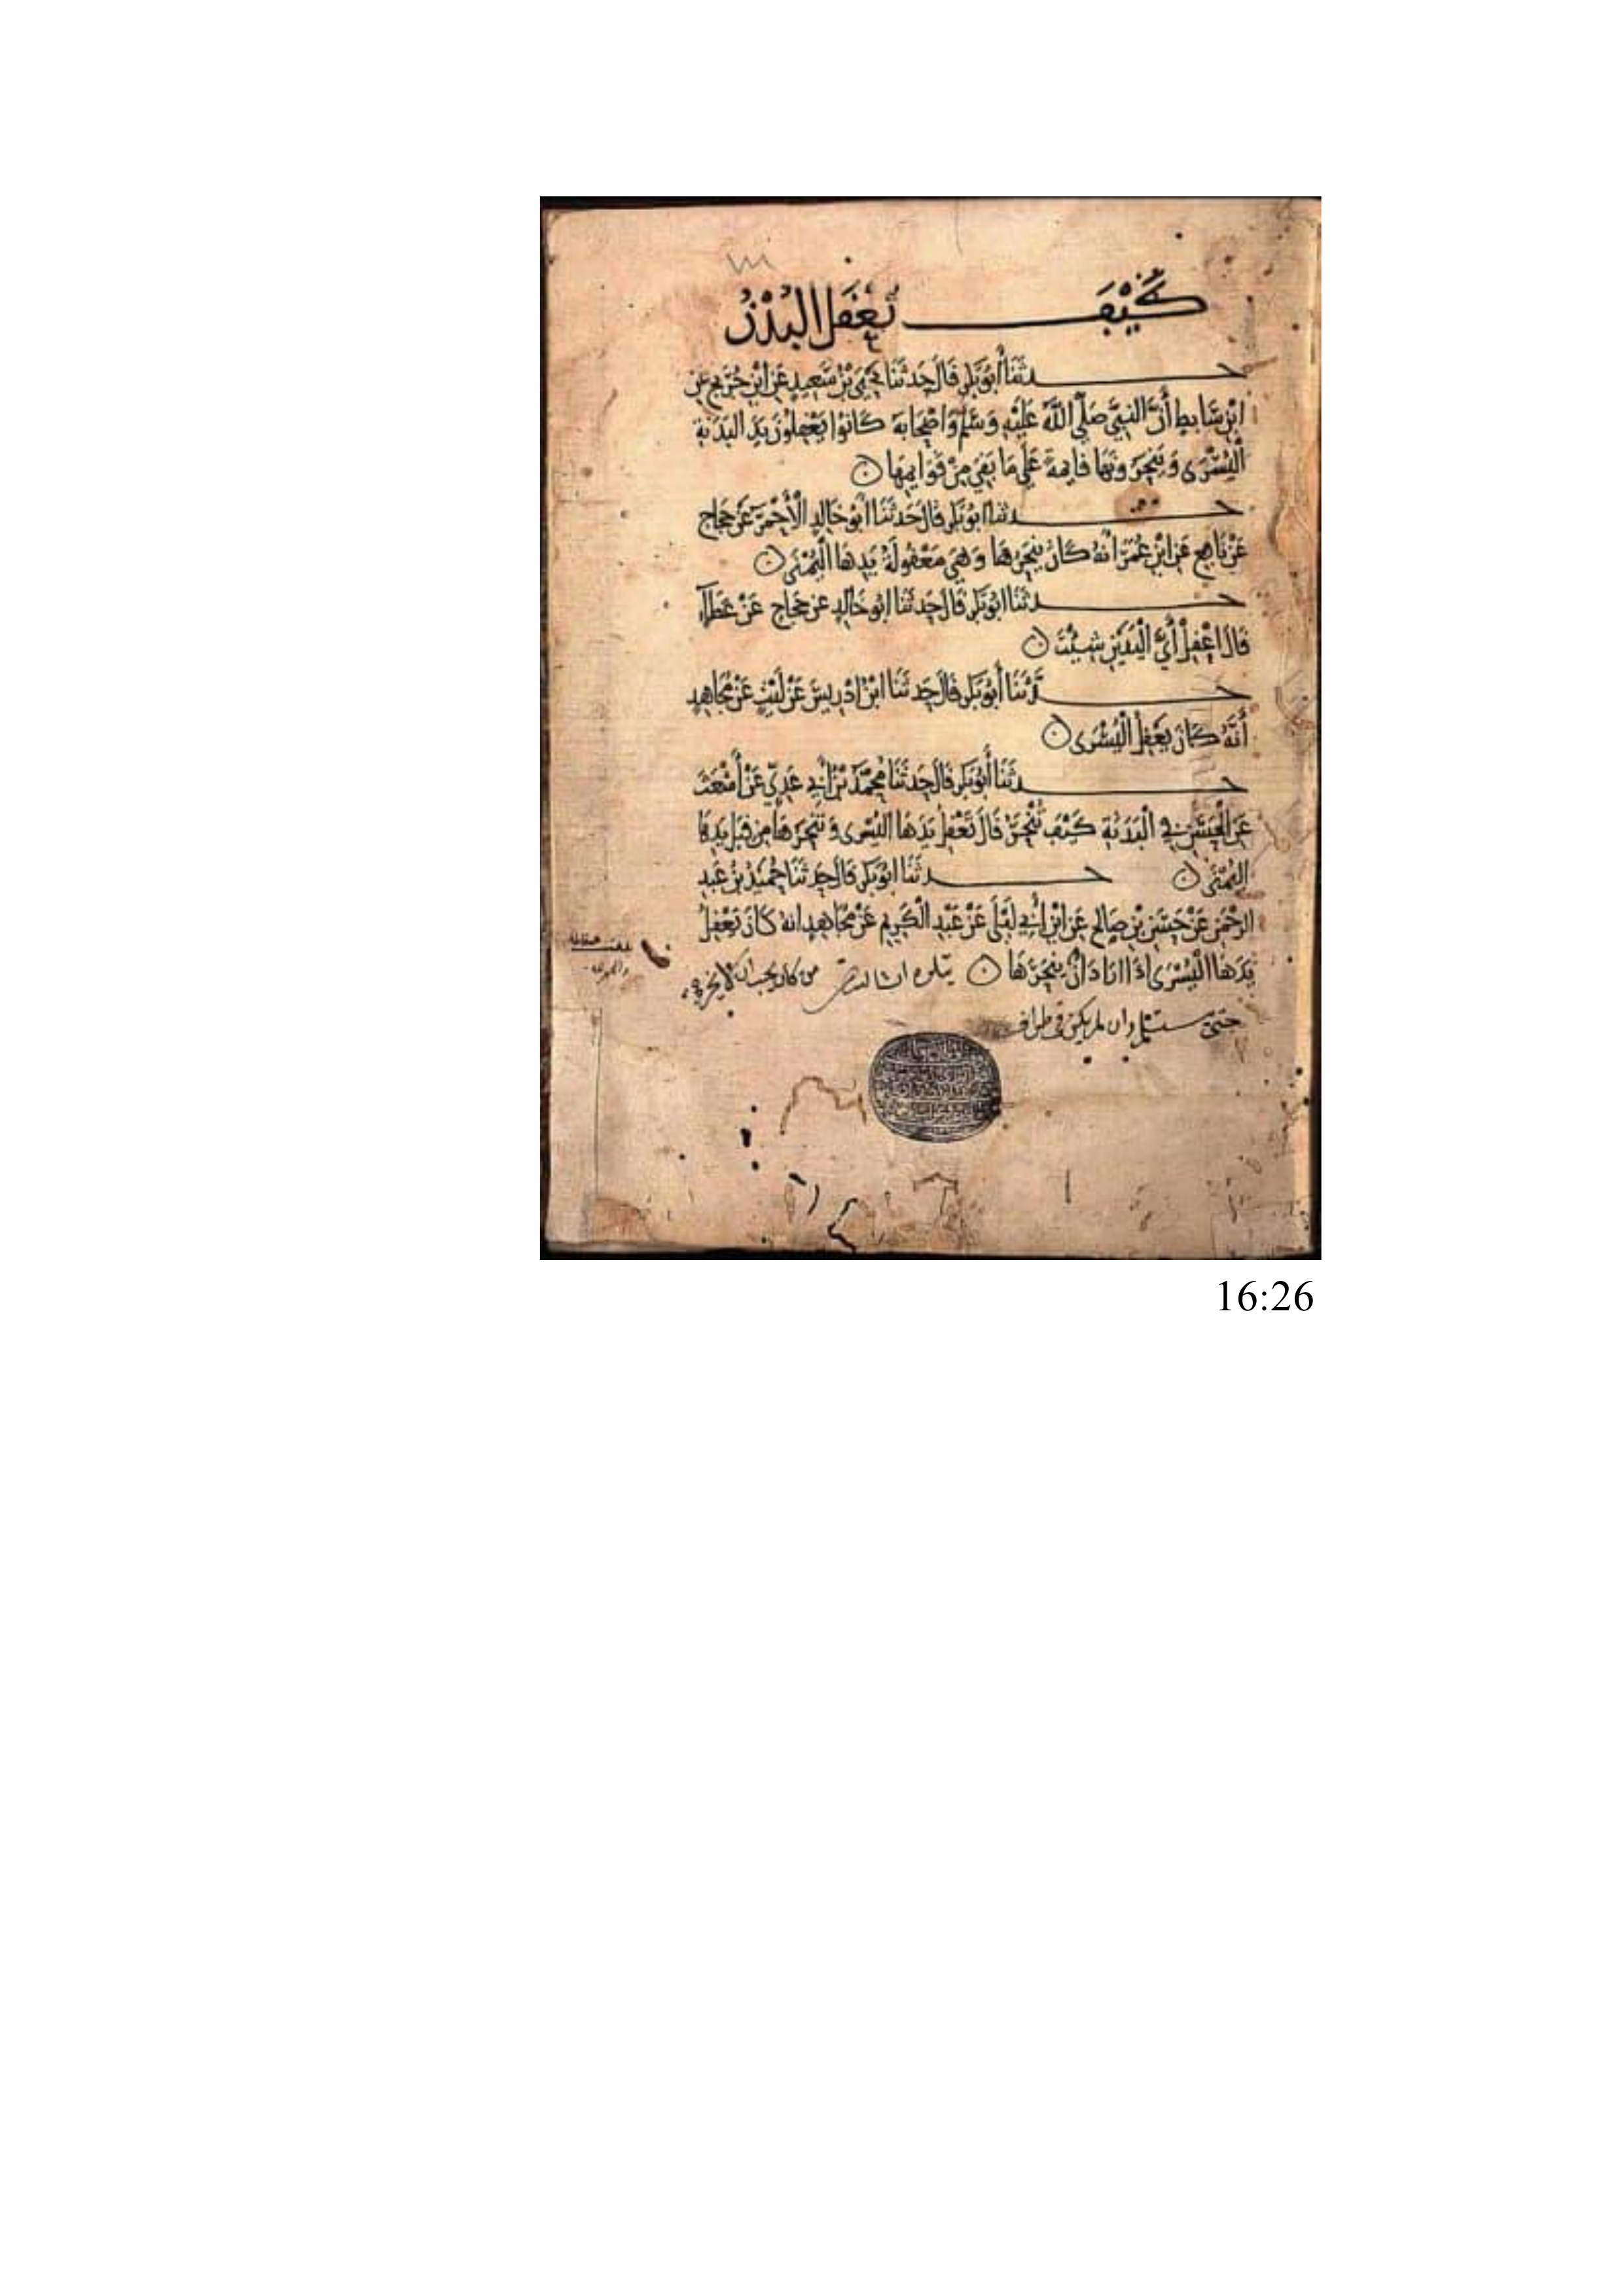 كَيْفَ تُعْقَلُ البُدْنُ
حدثَنَا أَبُو بَكْرٍ قَالَ حَدثَنَا يَحْيَى بْنُ سَعِيدٍ عَنِ ابْنِ جُرَيْجٍ عَنِ
ابْنِ سَابِطٍ أَنَّ النَّبِيَّ صَلَّى اللَّهُ عَلَيْهِ وَسَلَّمَ وَأَصْحَابَهُ كَانُوا يَعْقِلُونَ يَدَ البَدَنَةِ
الْيُسْرَى وَيَنْحَرُونَهَا قَائِمَةً عَلَى مَا بَقِيَ مِنْ قَوَايِمِهَا
حدثنا ابو بَكْرٍ قَالَ حَدثَنَا أبُو خَالِدٍ الْأَحْمَرُ عَنْ حَجَّاجٍ
عَنْ نَافِعٍ عَنِ ابْنِ عُمَرَ انَّهُ كَانَ يَنْحَرُهَا وَهِيَ مَعْقُولَةٌ يَدِهَا الْيُمْنَى
حدثَنَا ابُو بَكْرٍ قَالَ حَدثَنَا ابُو خَالِدٍ عن حَجَّاجٍ عَنْ عَطَآءٍ
قَالَ اعْقِلْ أَيَّ الْيَدَيْنِ شِئْتَ
حدثَنَا أَبُو بَكْرٍ قَالَ حَدثَنَا ابْنُ ادْرِيسَ عَنْ لَيْثٍ عَنْ مُجَاهِدٍ
أَنَّهُ كَانَ يَعْقِلُ الْيُسْرَى
حدثَنَا أَبُو بَكْرٍ قَالَ حَدثَنَا مُحَمَّدُ بْنُ أَبِي عَدِيٍّ عَنْ أَشْعَثَ
عَنِ الْحَسَنِ فِي الْبَدَنَةِ كَيْفَ تُنْحَرُ قَالَ تَعْقِلُ يَدَهَا اليُسْرَى وَتَنْحَرُهَا مِنْ قِبَلِ يَدِهَا
الْيُمْنَى حدثَنَا ابُو بَكْرٍ قَالَ حَدثَنَا حُمَيْدُ بْنُ عَبْدِ
الرَّحْمَنِ عَنْ حَسَنِ بْنِ صَالِحٍ عَنِ ابْنِ أَبِي لَيْلَى عَنْ عَبْدِ الْكَرِيمِ عَنْ مُجَاهِدٍ انه كَانَ يَعْقِلُ
يَدَهَا الْيُسْرَى اذَا ارَادَ أَنْ يَنْحَرَهَا يتلوه ان شا الله من كان يحب ان لا يخرج
حتى يستلم وان لم يكن في طواف
16:26